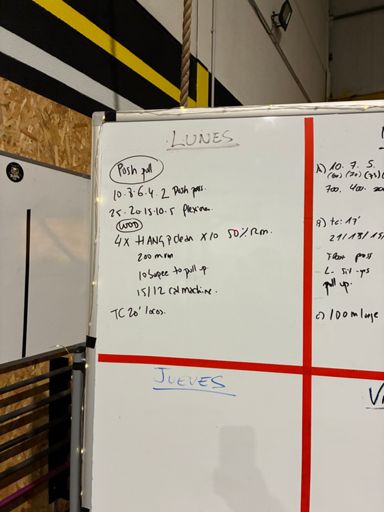 LUNES
Push pull
10. 8. 6. 4. 2 Push pass.
25. 20 15. 10. 5 flexiones.
WOD
4x HANG P clean x10 50% Rm.
200 m run
10 burpee to pull up
15/12 cal machine.
TC 20' locos.
JUEVES
A) 10. 7. 5.
700. 400.
B) tc: 17'
21/18/15
pass
L- Sit-ups
pull up.
c) 100 m lunge